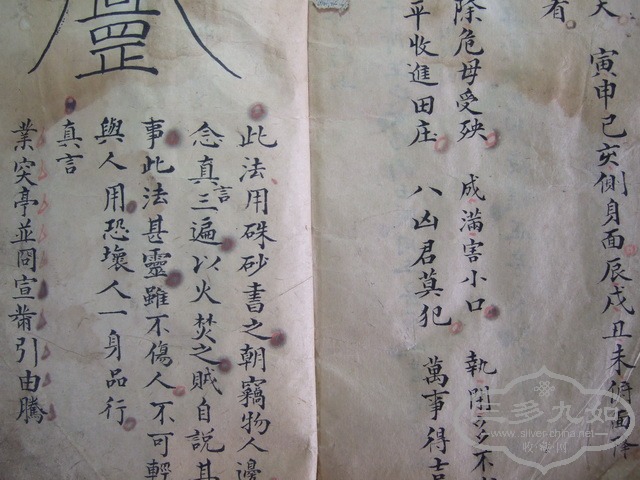 天
寅申己亥側身面辰戌丑未俯面
看
除危母受殃 成滿害小口 執閉多不
平收進田庄 八凶君莫犯 萬事得吉
此法用硃砂書之朝竊物人邊
念真言三遍以火焚之賊自說其
事此法甚靈雖不傷人不可輕
與人用恐壞人一身品行
真言
業突亭並囧宣 引由騰
三多九如
www.silver-china.net